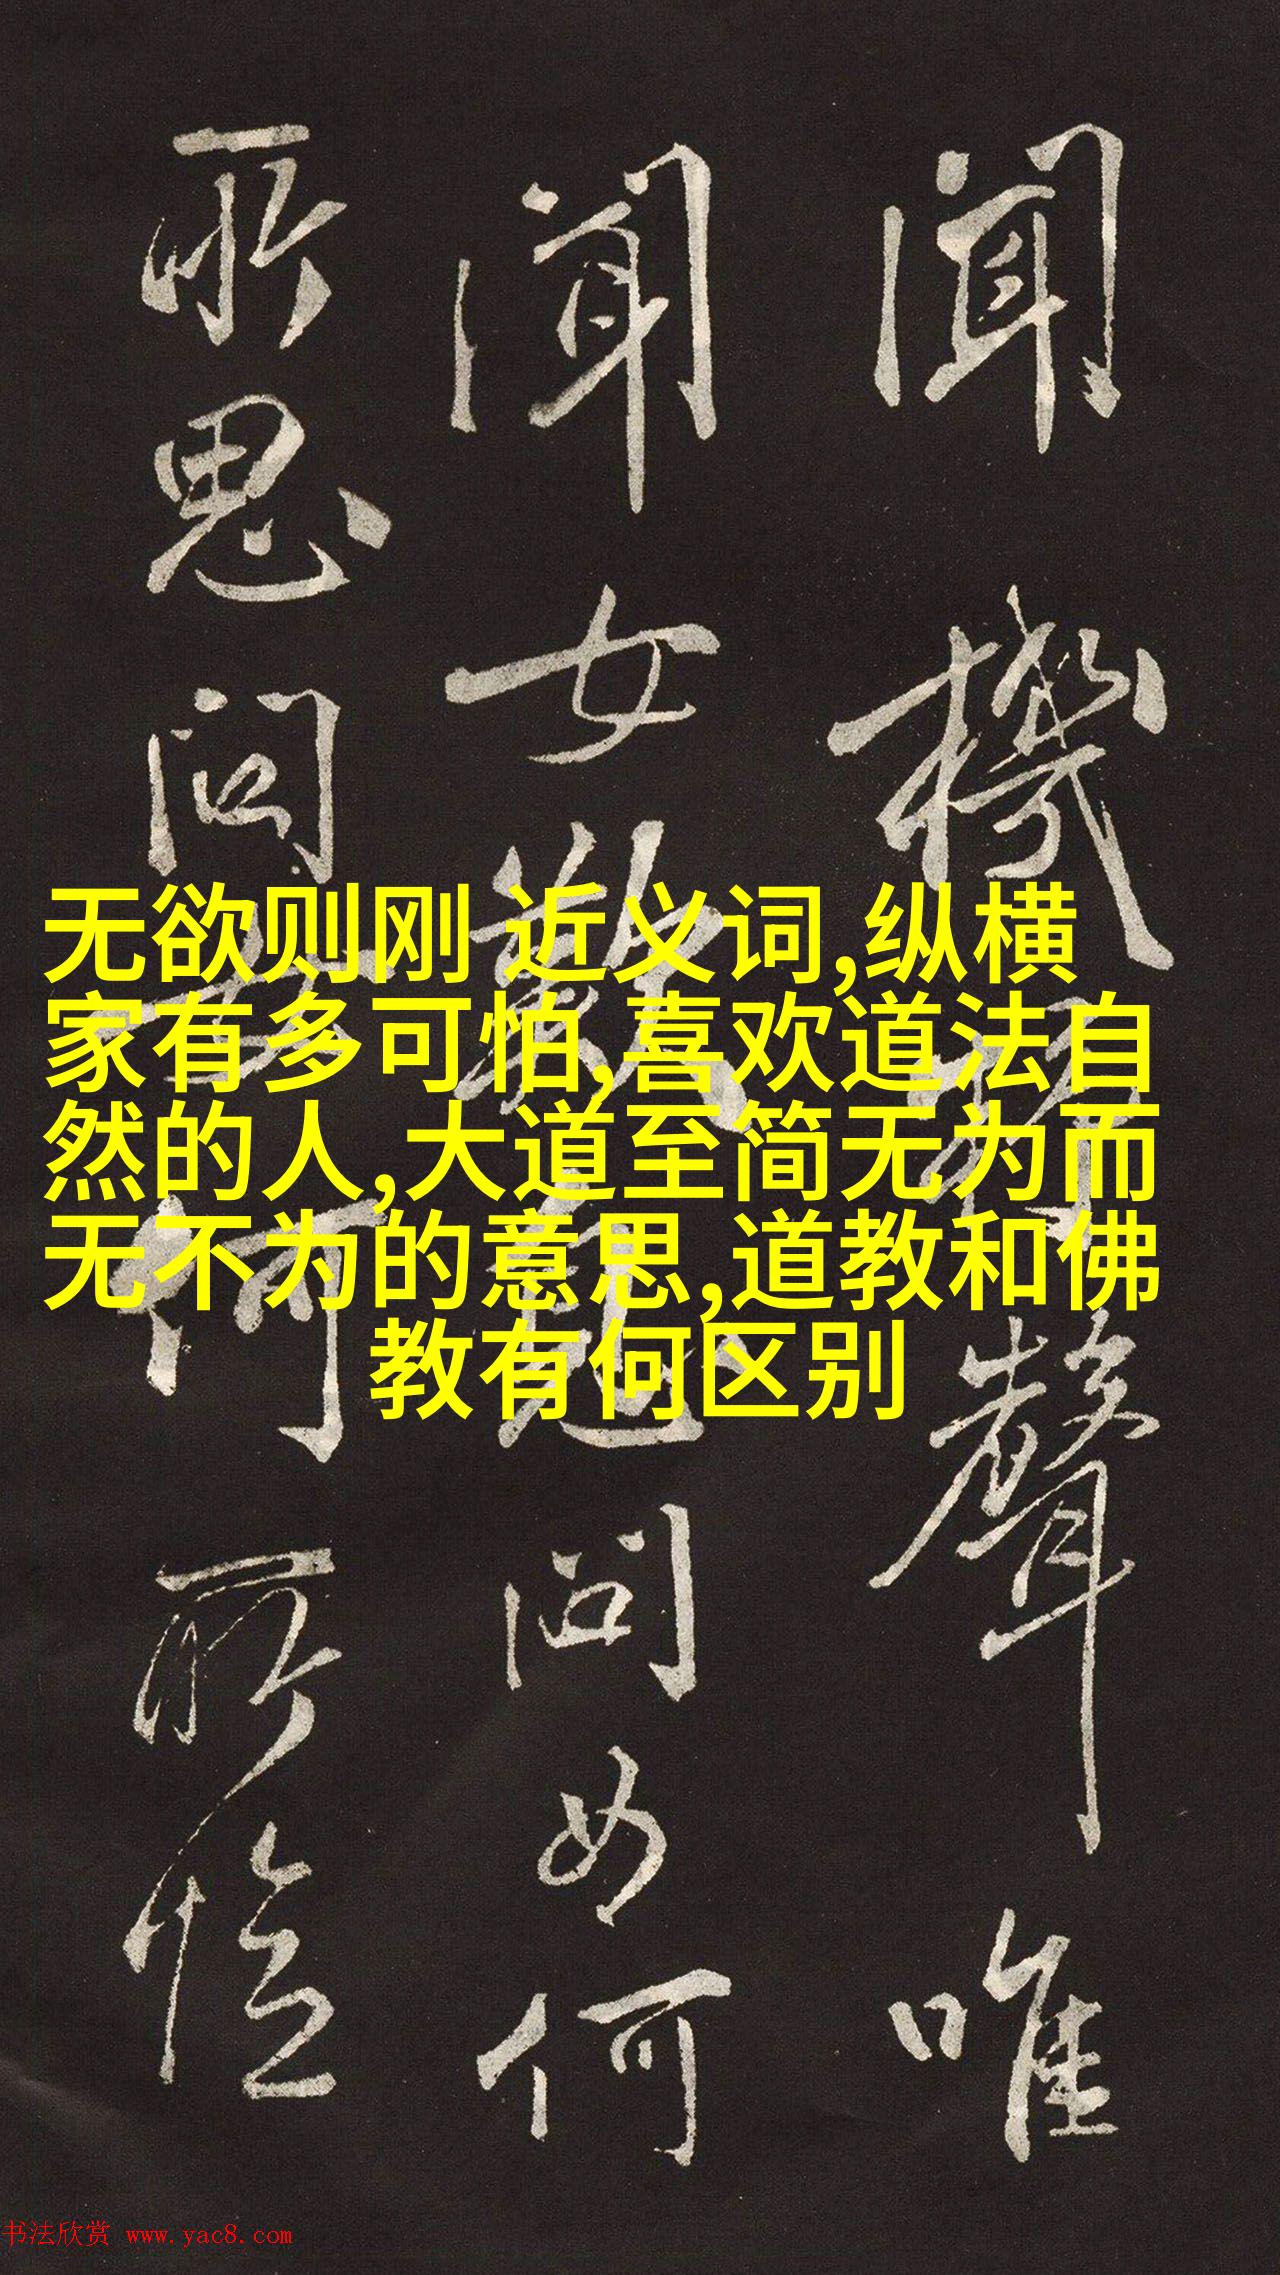 聞機杼聲唯
聞女歎息問女何
所思問女何所憶
无欲则刚 近义词,纵横
家有多可怕,喜欢道法自
然的人,大道至简无为而
无不为的意思,道教和佛
教有何区别
书法欣赏 www.yac8.com